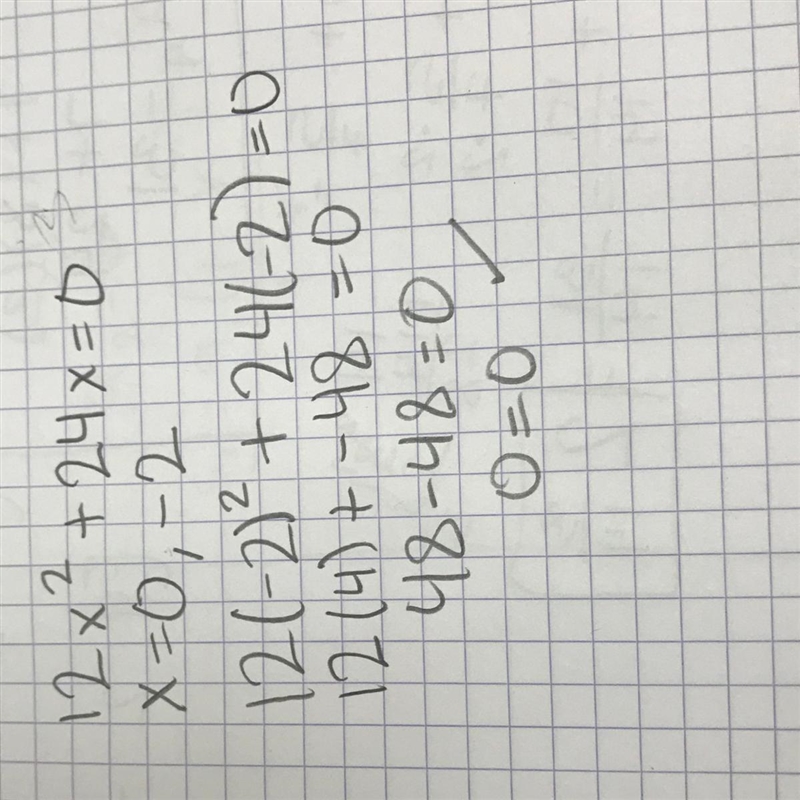 12x² + 24x = 0
x = 0, -2
12(-2)² + 24(-2) = 0
12(4) + -48 = 0
48 - 48 = 0
0 = 0